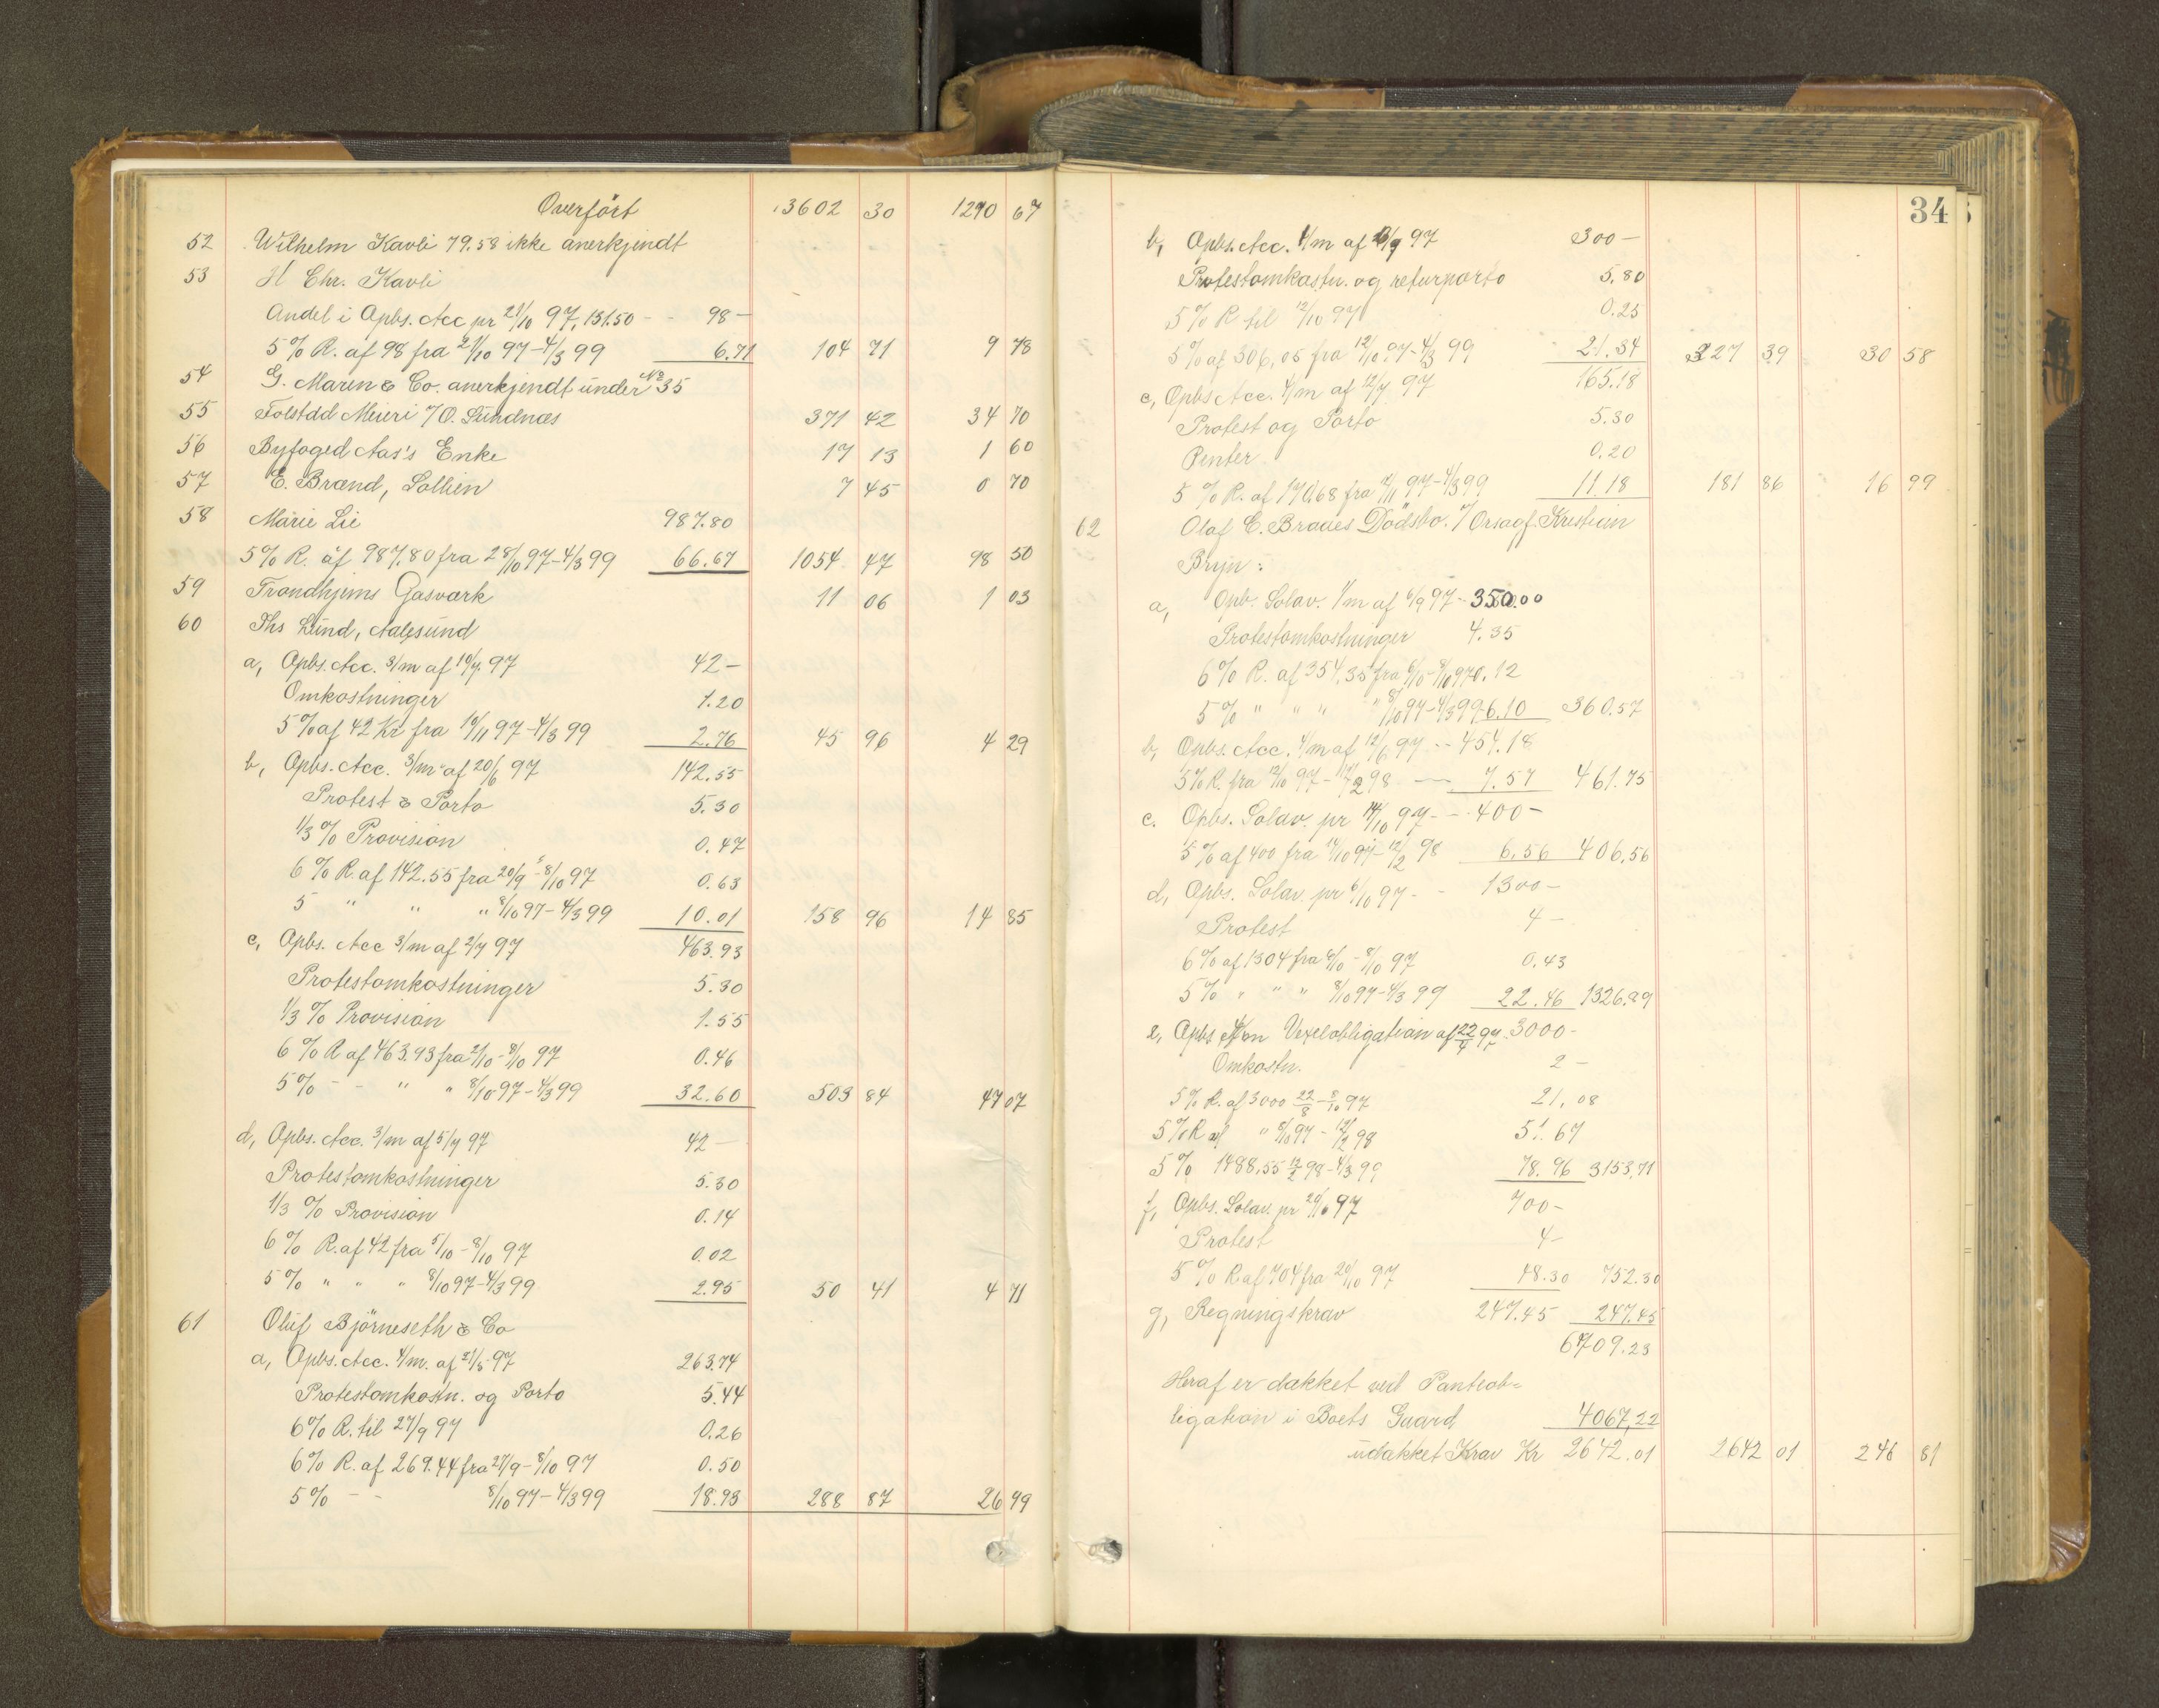 Overført 13602 30 1270 67
52 Wilhelm Kavli 79.58 ikke anerkjendt
53 H Chr. Kavli
Andel i Opbs. Acc pr 21/10 97, 131.50 - - 98 -
5 % R. af 98 fra 21/10 97 - 4/3 99 6.71 104 71 9 78
54 G. Maren & Co. anerkjendt under No 35
55 Tolstad Meieri / O. Sundnæs 371 42 34 70
56 Byfoged Aas's Enke 17 13 1 60
57 E. Brænd, Lollien 7 45 0 70
58 Marie Lie 987.80
5 % R. af 987.80 fra 28/10 97 - 4/3 99 66.67 1054 47 98 50
59 Trondhjems Gasværk 11 06 1 03
60 Ths Lund, Aalesund
a, Opbs. Acc. 3/m af 10/7. 97 42 -
Omkostninger 1.20
5 % af 42 Kr fra 10/11 97 - 4/3 99 2.76 45 96 4 29
b, Opbs. Acc. 3/m af 20/6 97 142.55
Protest & Porto 5.30
1/3 % Provision 0.47
6 % R. af 142.55 fra 20/9 - 8/10 97 0.63
5 " " " 8/10 97 - 4/3 99 10.01 158 96 14 85
c, Opbs. Acc 3/m af 2/7 97 463.93
Protestomkostninger 5.30
1/3 % Provision 1.55
6 % R af 463.93 fra 2/10 - 8/10 97 0.46
5 % - - " " 8/10 97 - 4/3 99 32.60 503 84 47 07
d, Opbs. Acc. 3/m af 5/7 97 42 -
Protestomkostninger 5.30
1/3 % Provision 0.14
6 % R. af 42 fra 5/10 - 8/10 97 0.02
5 % " " " 8/10 97 - 4/3 99 2.95 50 41 4 71
61 Oluf Björneseth & Co
a, Opbs. Acc. 4/m. af 21/5 97 263.74
Protestomkostn. og Porto 5.44
6 % R. til 27/9 97 0.26
6 % R. af 269.44 fra 27/9 - 8/10 97 0.50
5 % - - 8/10 97 - 4/3 99 18.93 288 87 26 99
34
b, Opbs. Acc. 1/m af 97 300 -
Protestomkostn. og returporto 5.80
5 % R til 12/10 97 0.25
5 % af 306,05 fra 12/10 97 - 4/3 99 21.34 327 39 30 58
c, Opbs Acc. 4/m af 12/7 97 165.18
Protest og Porto 5.30
Renter 0.20
5 % R. af 170.68 fra 12/11 97 - 4/3 99 11.18 181 86 16 99
62 Olaf E. Braaes Dödsbo. v/ Orsagf. Kristian
Bryn :
a, Opb. Solav. 1/m af 6/9 97 - 350.00
Protestomkostninger 4.35
6 % R. af 354.35 fra 6/10 - 8/10 97 0.12
5 % " " " " 8/10 97 - 4/3 99 - 6.10 360.57
b, Opbs. Acc. 4/m af 12/6 97 - - 454.18
5 % R. fra 12/10 97 - 12/2 98 - 7.57 461.75
c. Opbs. Solav. pr 14/10 97 - - 400 -
5 % af 400 fra 14/10 97 - 12/2 98 6.56 406,56
d, Opbs. Solav. pr 6/10 97 - - 1300 -
Protest 4 -
6 % af 1304 fra 6/10 - 8/10 97 0.43
5 % " " " 8/10 97 - 4/3 99 22.46 1326.89
e, Opbs 4/m Vexelobligation af 22/4 97 . 3000 -
Omkostn. 2 -
5 % R. af 3000 22/8 - 8/10 97 21,08
5 % R af " 8/10 97 - 12/2 98 51.67
5 % 1488,55 12/2 98 - 4/3 99 78.96 3153,71
f, Opbs. Solav. pr 20/10 97 700 -
Protest 4 -
5 % R af 704 fra 20/10 97 48.30 752.30
g, Regningskrav 247.45 247.45
6709.23
Heraf er dækket ved Panteob=
ligation i Boets Gaard 4067,22
udækket Krav Kr 2642.01 2642 01 246 81